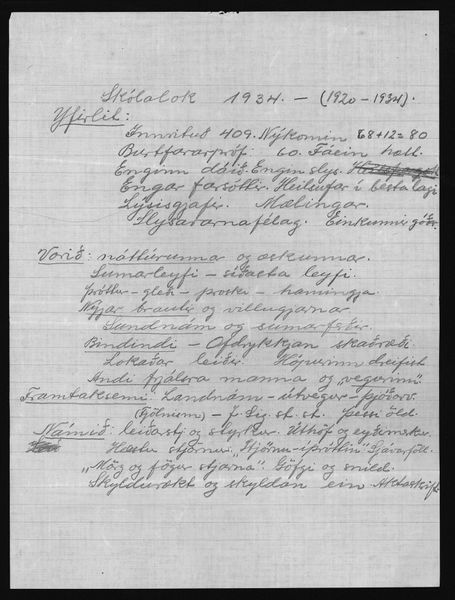 Skólalok 1934. – (1920 – 1934).
Yfirlit:
Innrituð 409. Nýkomin 68+12=80
Burtfararpróf. 60. Fáein hætt.
Enginn dáið. Engin slys.
Engar farsóttir. Heilsufar í besta lagi
Lýsisgjafir. Mælingar.
Slysavarnafélag. Einkunnir góðar.
Vorið: náttúrunnar og æskunnar.
Sumarleyfi – síðasta leyfi.
Þróttur – gleði – þroski – hamingja
Nýjar brautir og villugjarnar.
Sundnám og sumarfríð.
Bindindi – Ofdrykkjan skaðræði.
Lokaðar leiðir. Hópurinn dreifist
Andi frjálsra manna og
Framtaksemi. Landnám – útvegur – þjóðarv.
(Fjölnism) – J. Sig. st. st. þessi öld.
Námið: leiðarstj og styrkur. Úthöf og eyðimerkur.
Hæstu stjörnu. Stjörnu-íþróttin
„Mörg og fögur stjarna". Göfgi og snild.
Skyldurækt og skyldan ein